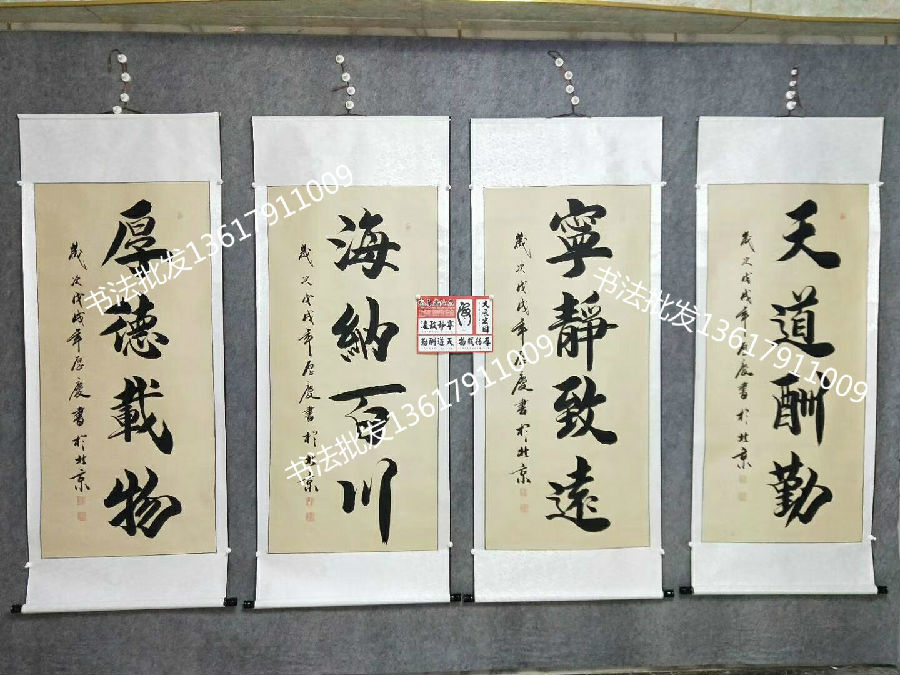 厚德載物
歲次戊戌年厚慶書於北京
書法批发13617911009
海納百川
歲次戊戌年厚慶書於北京
寧靜致遠
歲次戊戌年厚慶書於北京
天道酬勤
歲次戊戌年厚慶書於北京
寧靜致遠
厚德載物
天道酬勤
书法批发13617911009
书法批发13617911009